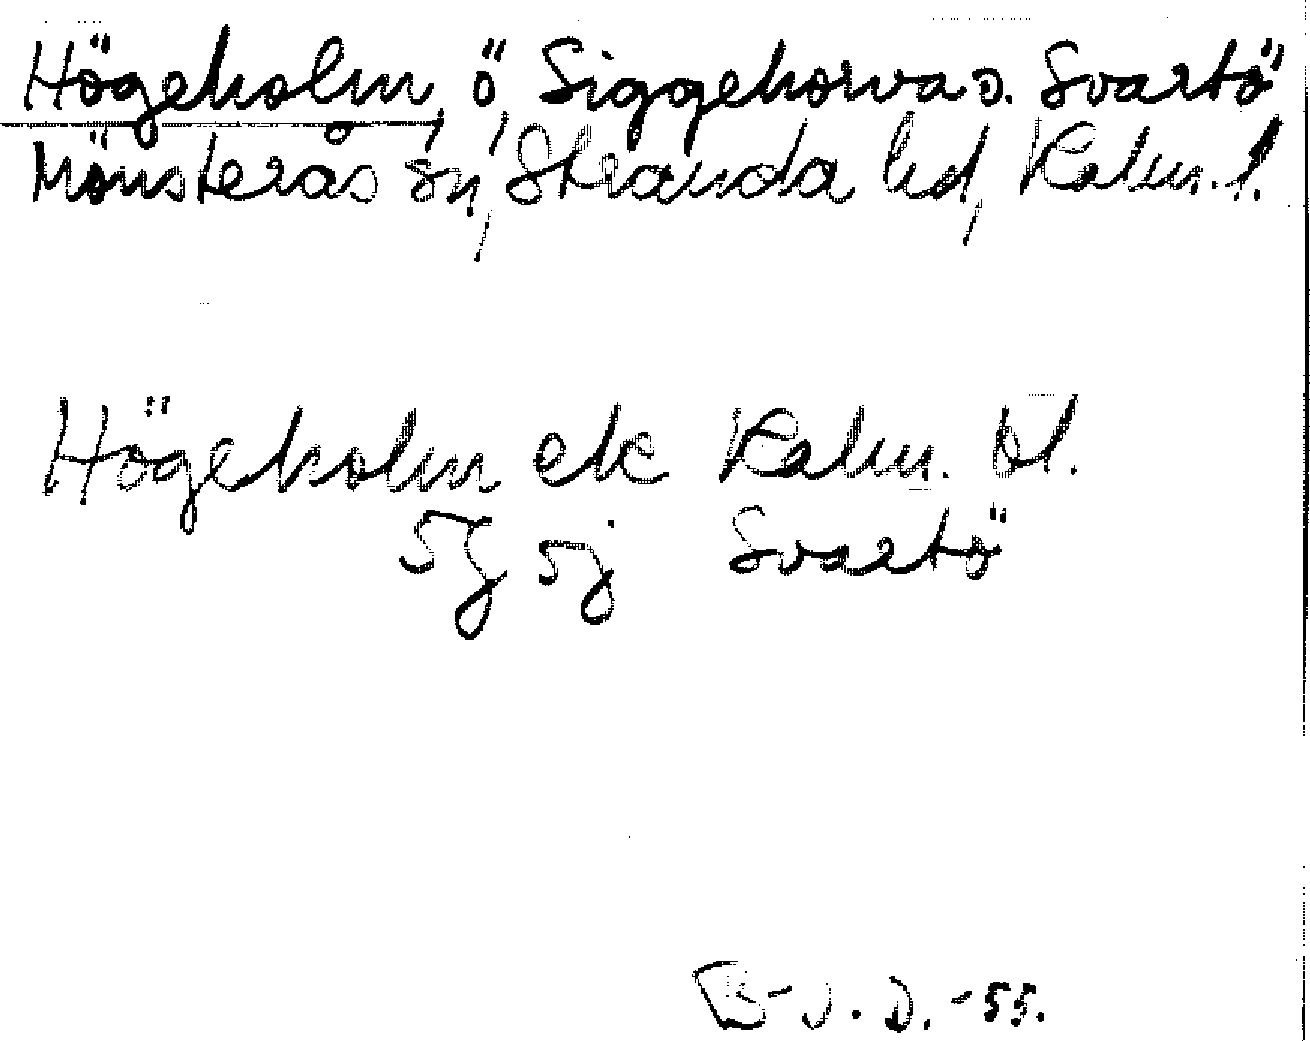 Högeholm, ö, Siggehorva o. Svartö
Mönsterås sn, Stranda hd, Kalm. l.
Högeholm ek Kalm. bl.
5g 5j Svartö
B-J. D. -55.